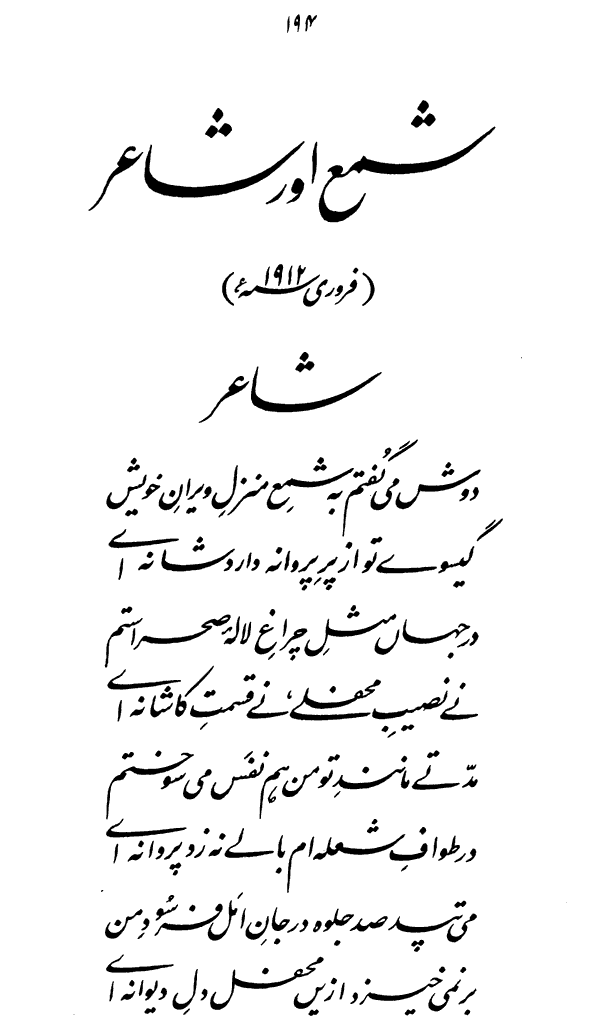 ۱۹۴
شمع اور شاعر
(فروری ۱۹۱۲ء)
شاعر
دوش می گُفتم بہ شمعِ منزلِ ویرانِ خویش
گیسوے تو از پرِ پروانہ دارد شانہ اے
در جہاں مثلِ چراغِ لالۂ صحراستم
نے نصیبِ محفلے، نے قسمتِ کاشانہ اے
مدّتے مانندِ تو من ہم نفَس می سوختم
در طوافِ شعلہ ام بالے نہ زد پروانہ اے
می تپد صد جلوہ در جانِ اَمَل فرسُودِ من
بر نمی خیزد ازیں محفل دلِ دیوانہ اے